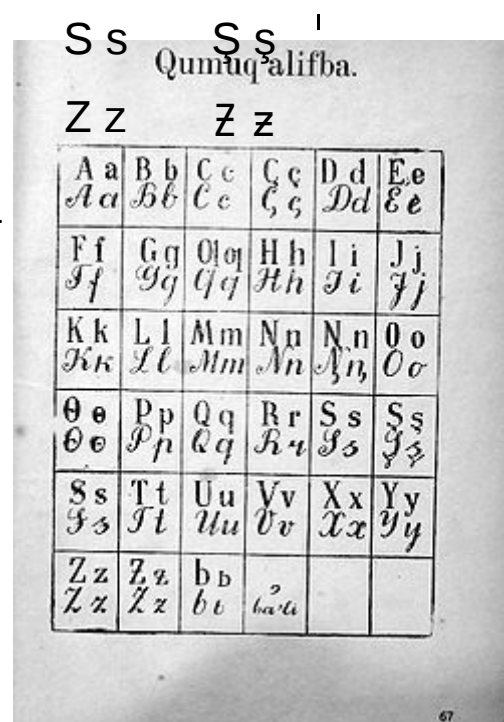 S s Ş ş ˈ
Qumuq alifba.
Z z Ƶ ƶ
A a B b C c Ç ç D d E e
A a B b C c Ç ç D d E e
F f G g Ƣ ƣ H h I i J j
F f G g Ƣ ƣ H h I i J j
K k L l M m N n N̡ n̡ O o
K k L l M m N n N̡ n̡ O o
Ɵ ɵ P p Q q R r S s Ş ş
Ɵ ɵ P p Q q R r S s Ş ş
S s T t U u V v X x Y y
S s T t U u V v X x Y y
Z z Ƶ ƶ b ь ʼ
Z z Ƶ ƶ b ь
67